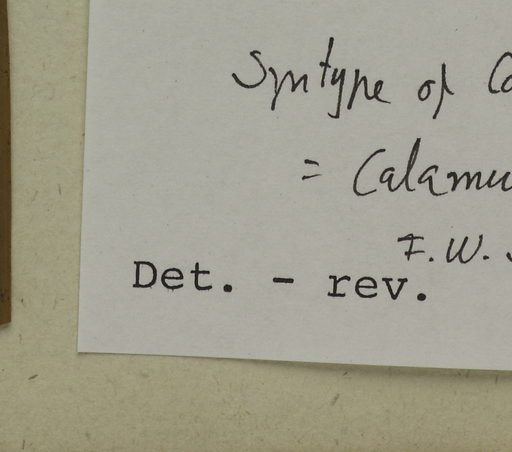 Syntype of
= Calamu
F.W.
Det. - rev.